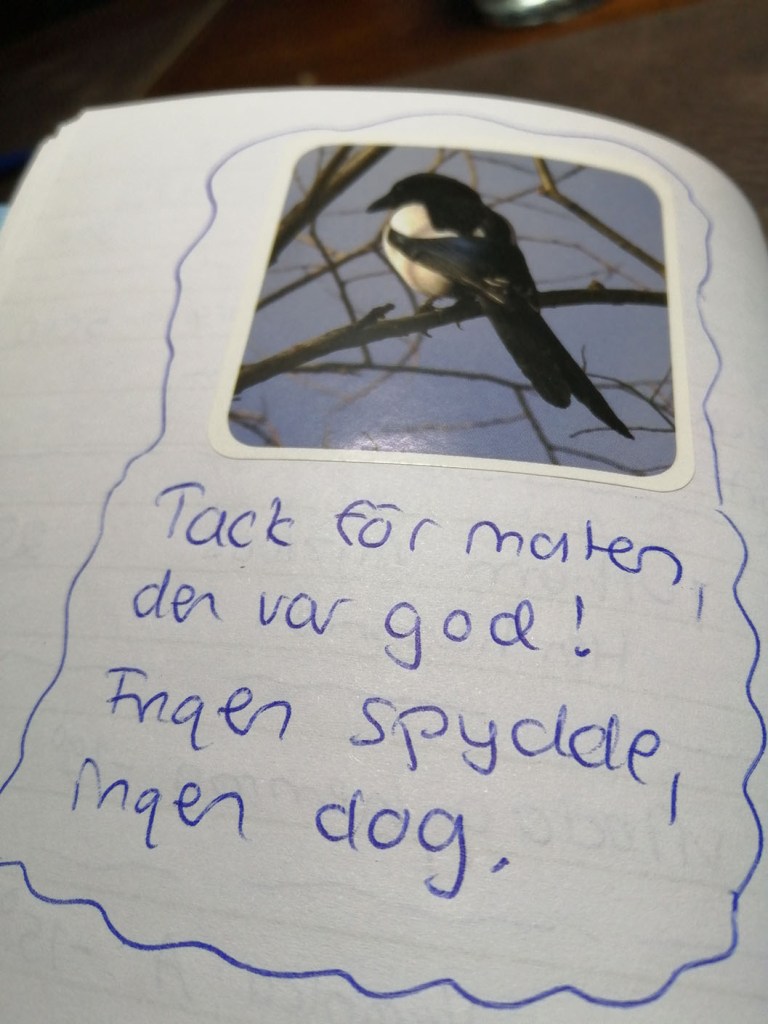 Tack för maten,
den var god!
Ingen spydde,
ingen dog.